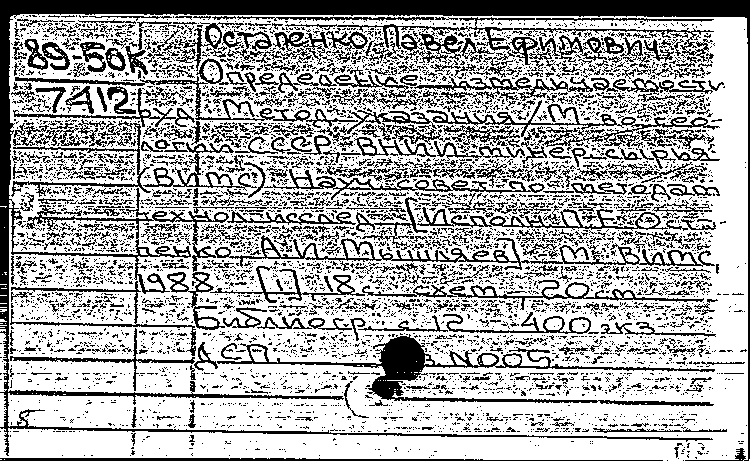 89-50к
7412
Остапенко, Павел Ефимович.
Определение измельчаемости
руд : Метод. указания / М-во гео-
логии СССР, ВНИИ минер. сырья
(ВИМС). Науч. совет по методам
технол. исслед. ; [Исполн. П. Е. Оста-
пенко, А. И. Мышляев]. - М. ВИМС,
1988. - [1], 18 с. схем. ; 20 см.
Библиогр. с. 12 400 экз.
ДСП. N005.